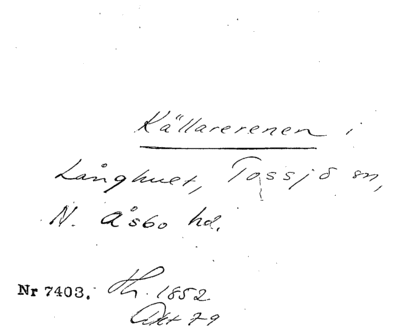 Källarerenen i
Långhuet, Tossjö sn,
N. Åsbo hd.
Nr 7403. Th. 1852
Okt 79